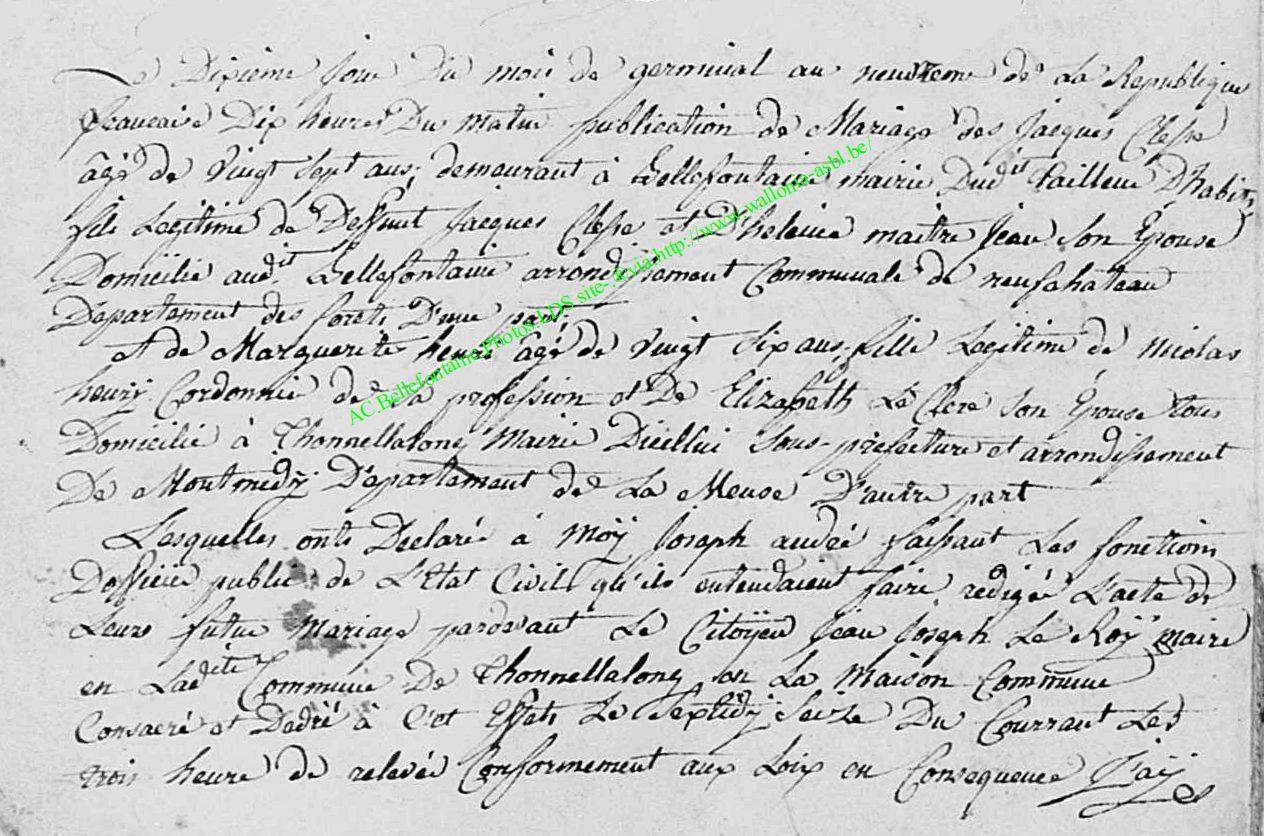 Le Dixieme jour du mois de germinal an neuvieme de La Republique
francaise Dix heures Du matin publication de Mariage des Jacques Clesse
âgé de vingt sept ans; demeurant à Bellefontaine mairie Dudit tailleur D'habits
fils Legitime de Deffunt Jacques Clesse et D'heleine maitre jean Son Epouse
Domicilié audit Bellefontaine arrondissement Communale de neufchateau
Departement des forets D'une part.
et de Marguerite henri âgé de vingt Six ans, fille Legitime de Nicolas
henrÿ Cordonnié de Sa profession et De Elizabeth Le Clerc Son Epouse tous
Domicilié à Thonnellalong Mairie Dicellui Sous-prefecture et arrondissement
De Montmedÿ Departement de La Meuse D'autre part
Lesquelles onts Declaré à Moÿ Joseph andré faissant Les fonctions
Dofficier public de L'Etat Civil qu'ils entendaient faire redigé L'acte de
Leurs futur Mariage pardevant Le Citoÿen Jean Joseph Le Roÿ maire
en Ladite Commune De Thonnellalong en La Maison Commune
Consacré et Dedié à C'et Effets Le Septidÿ Seize Du Courrant Les
trois heure de relevée Conformement aux Loix en Consequence J'aÿ
AC.Bellefontaine.Photos.LDS site-.fr via http://www.wallonia-asbl.be/